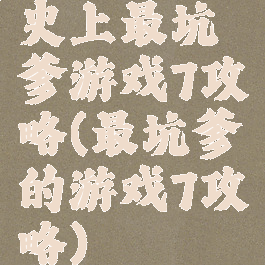 史上最坑
爹游戏7攻
略(最坑爹
的游戏7攻
略)